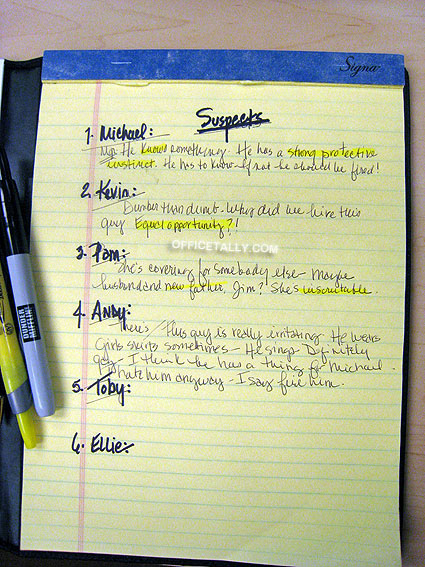 Signa
Suspects
1. Michael:
He knows something. He has a strong protective
instinct. He has to know - if not he should be fired!
2. Kevin:
Dumber than dumb - why did we hire this
guy Equal opportunity?!
OFFICETALLY.COM
3. Pam:
She's covering for somebody else - maybe
husband and new father, Jim?! She's inscrutable
4. Andy:
There's / This guy is really irritating. He wears
Girls skirts sometimes - He sings - Definitely
gay - I think he has a thing for Michael.
I hate him anyway - I say fire him.
5. Toby:
6. Ellie: